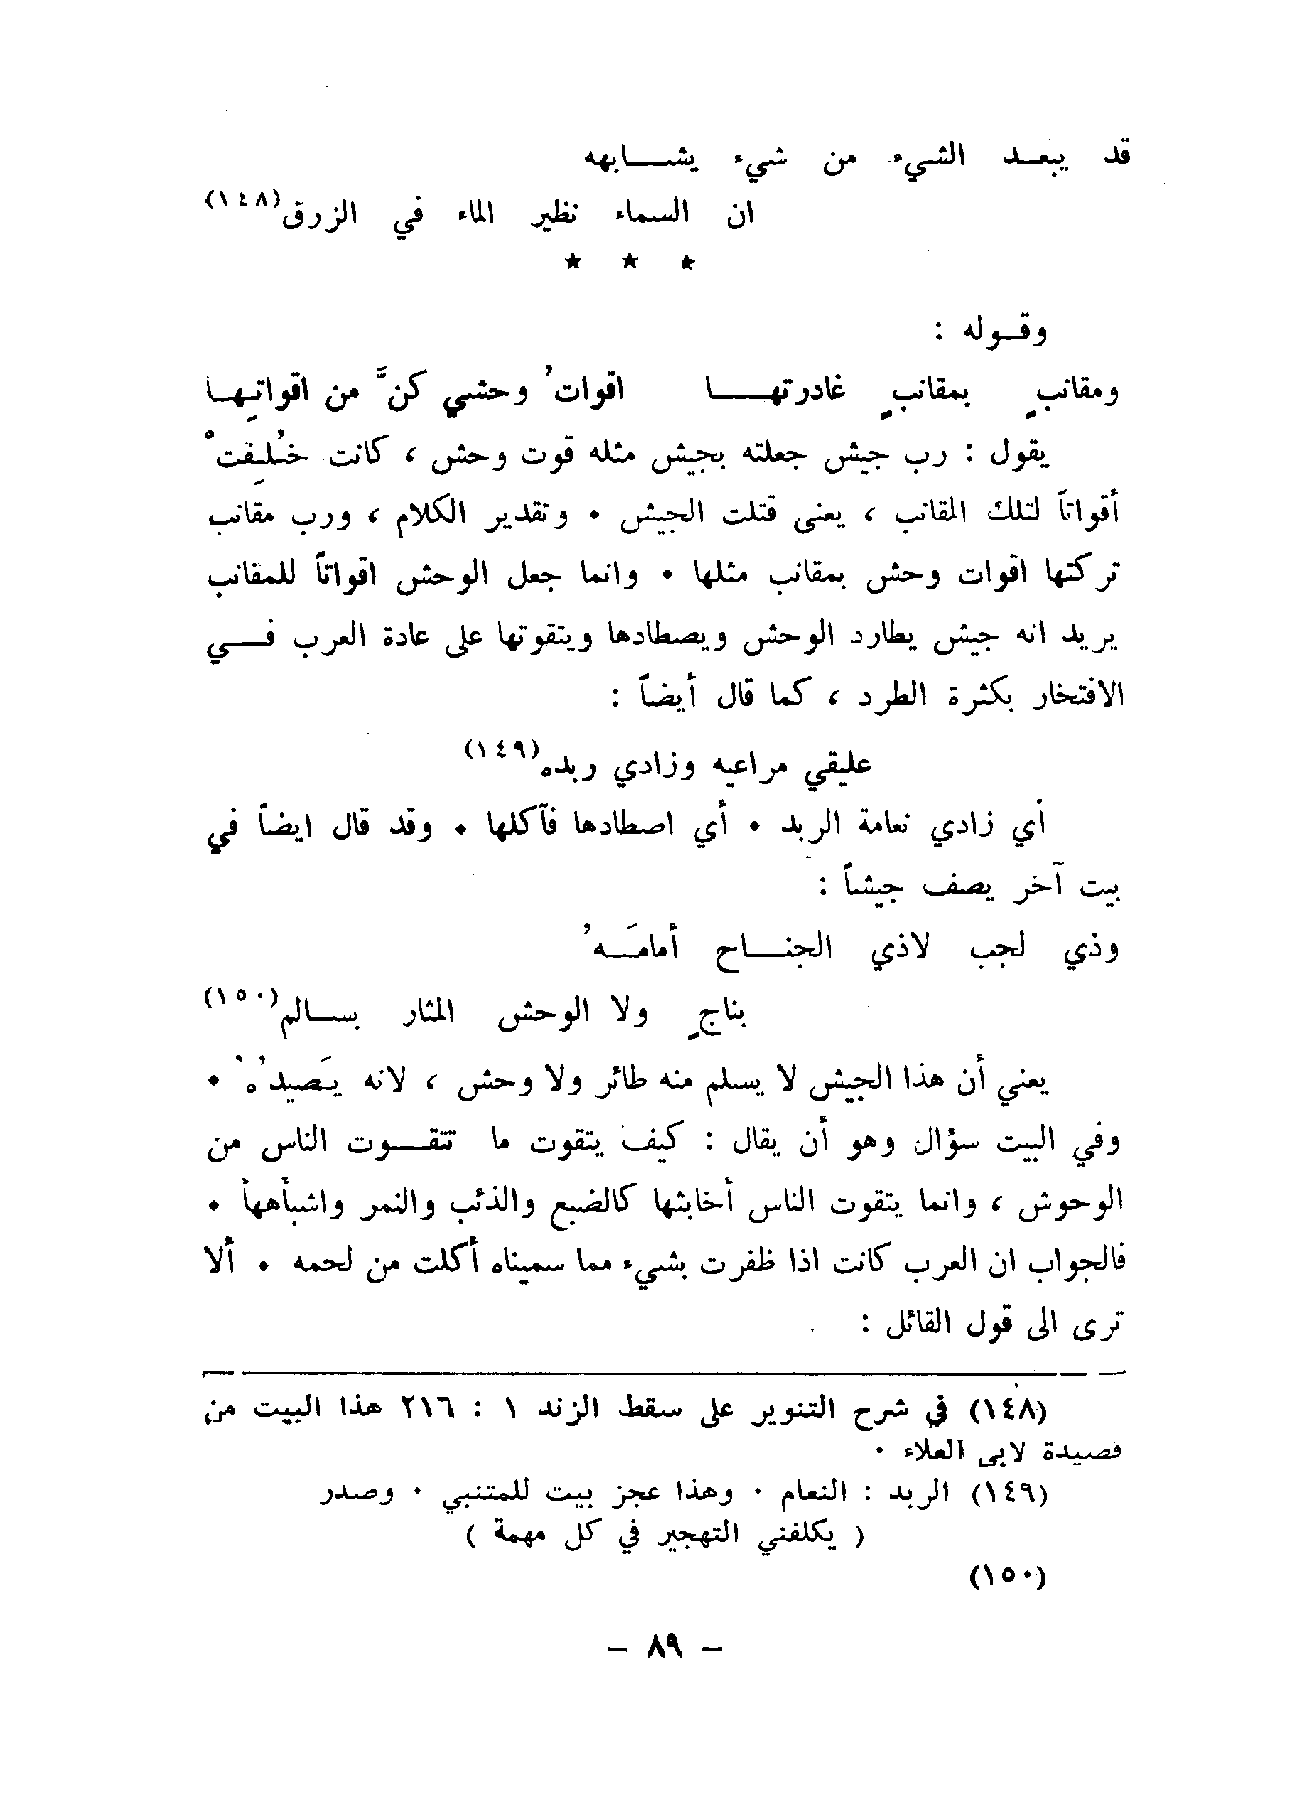 قد يبعد الشيء من شيء يشابهه
ان السماء نظير الماء في الزرق(١٤٨)
★ ★ ★
وقوله :
ومقانبٍ بمقانبٍ غادرتها اقواتُ وحشي كنَّ من اقواتِها
يقول : رب جيش جعلته بجيش مثله قوت وحش ، كانت خُلِفتْ
أقواتاً لتلك المقانب ، يعنى قتلت الجيش ٠ وتقدير الكلام ، ورب مقانب
تركتها اقوات وحش بمقانب مثلها ٠ وانما جعل الوحش اقواتاً للمقانب
يريد انه جيش يطارد الوحش ويصطادها ويتقوتها على عادة العرب في
الافتخار بكثرة الطرد ، كما قال أيضاً :
عليقي مراعيه وزادي ربده(١٤٩)
أي زادي نعامة الربد ٠ أي اصطادها فآكلها ٠ وقد قال ايضاً في
بيت آخر يصف جيشاً :
وذي لجب لاذي الجناح أمامَهُ
بناجٍ ولا الوحش المثار بسالم(١٥٠)
يعني أن هذا الجيش لا يسلم منه طائر ولا وحش ، لانه يَصيدُهُ ٠
وفي البيت سؤال وهو أن يقال : كيف يتقوت ما تتقوت الناس من
الوحوش ، وانما يتقوت الناس أخابثها كالضبع والذئب والنمر واشبأهها ٠
فالجواب ان العرب كانت اذا ظفرت بشيء مما سميناه أكلت من لحمه ٠ ألا
ترى الى قول القائل :
(١٤٨) في شرح التنوير على سقط الزند ١ : ٢١٦ هذا البيت من
قصيدة لابى العلاء ٠
(١٤٩) الربد : النعام ٠ وهذا عجز بيت للمتنبي ٠ وصدر
( يكلفني التهجير في كل مهمة )
(١٥٠)
– ٨٩ –